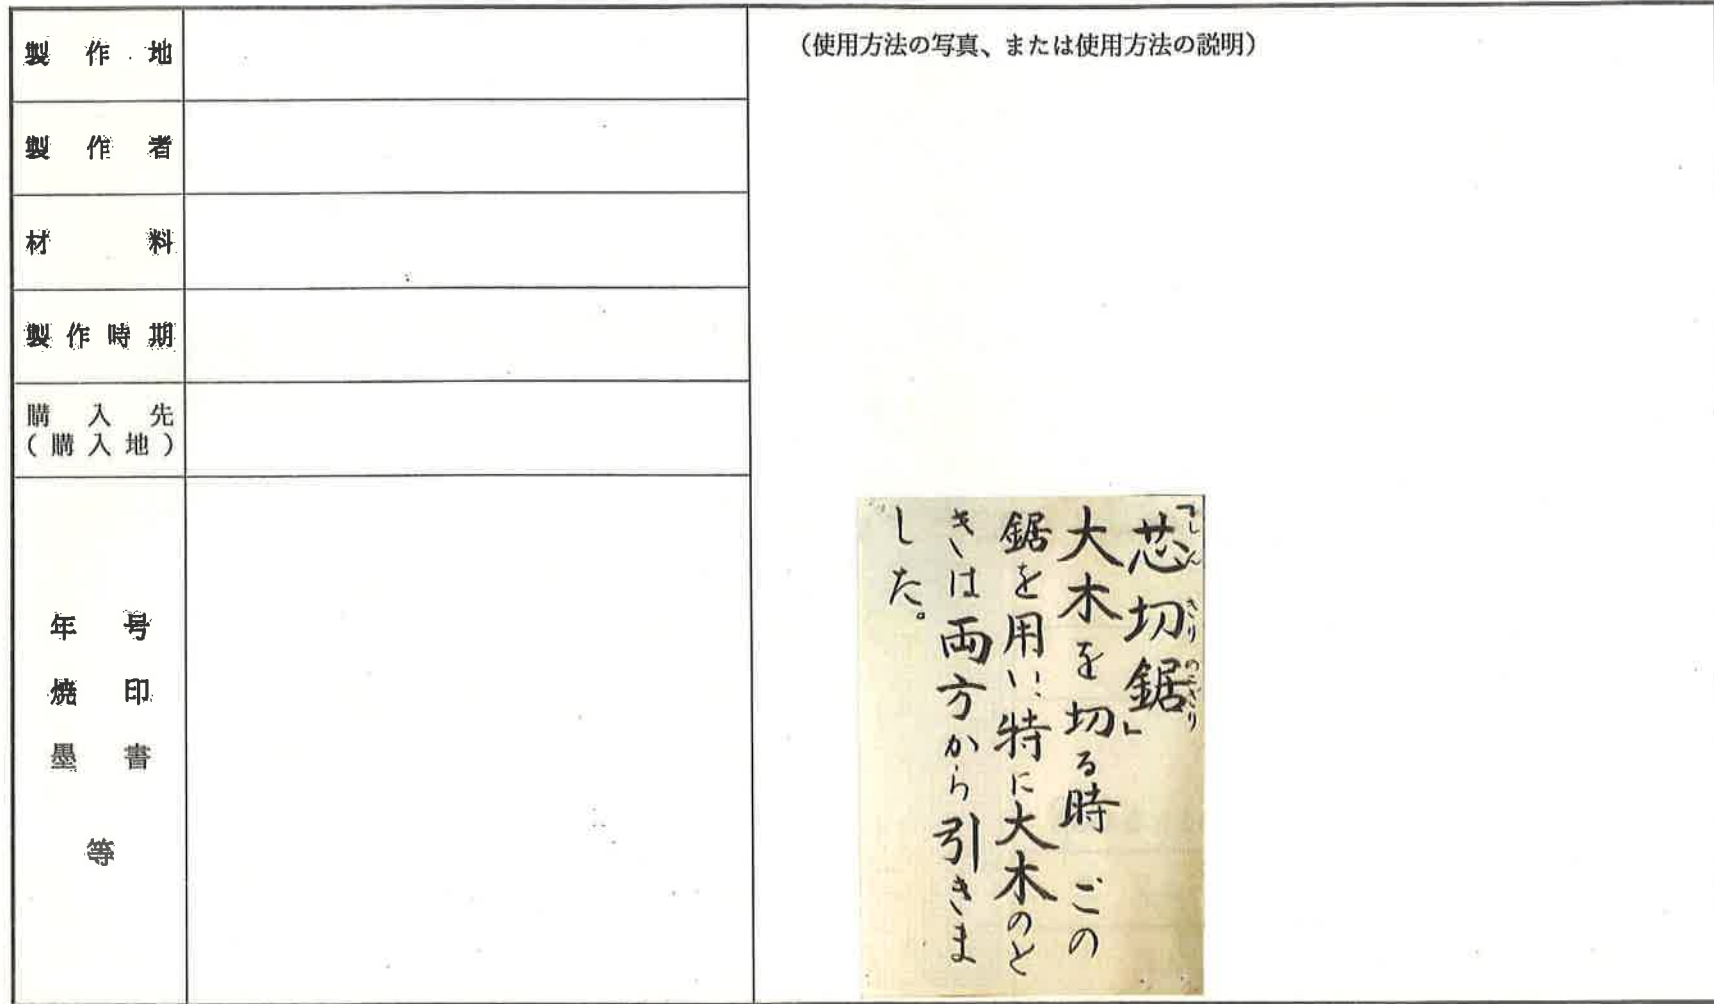 製作地
製作者
材料
製作時期
購入先
(購入地)
年号
焼印
墨書
等
(使用方法の写真、または使用方法の説明)
「芯切鋸」
しん きり のこぎり
大木を切る時 この
鋸を用い、特に大木のと
きは両方から引きま
した。